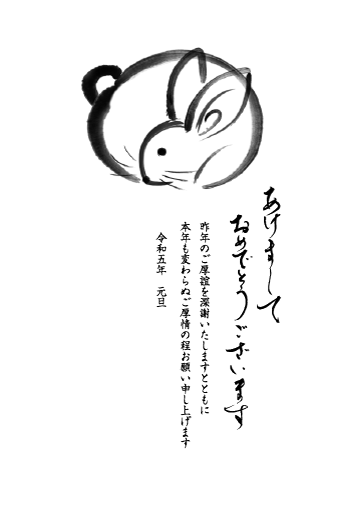 あけまして
おめでとうございます
昨年のご厚誼を深謝いたしますとともに
本年も変わらぬご厚情の程お願い申し上げます
令和五年　元旦